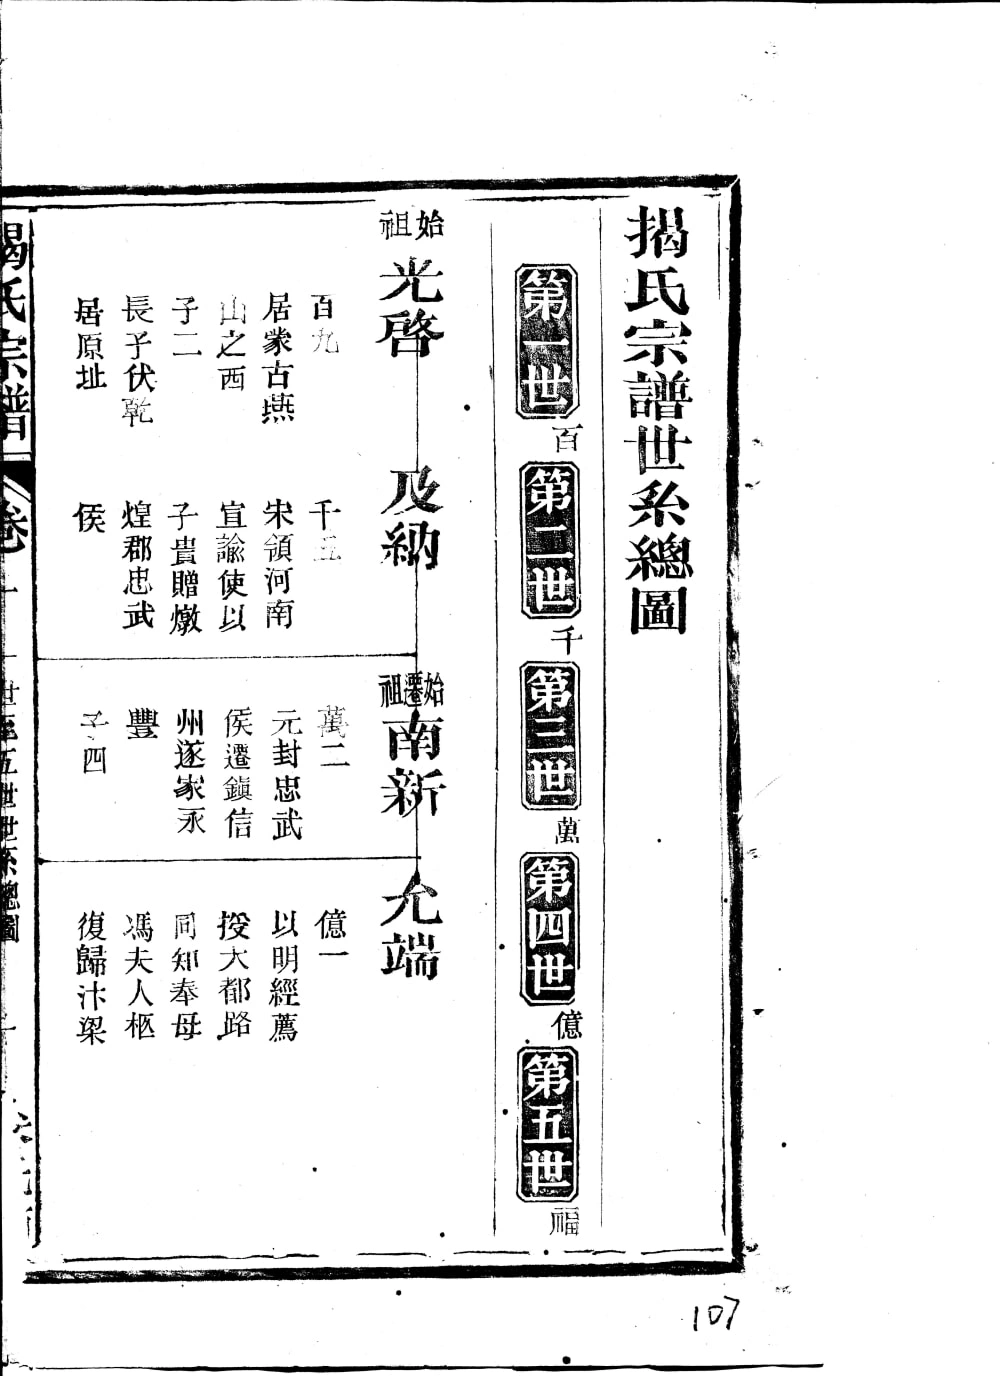 揭氏宗譜世系總圖
第一世 百
第二世 千
第三世 萬
第四世 億
第五世 福
始祖
光啓
百九
居蒙古燕
山之西
子二
長子伏乾
居原址
及納
千五
宋領河南
宣諭使以
子貴贈燉
煌郡忠武
侯
始遷祖
南新
萬二
元封忠武
侯遷鎮信
州遂家永
豐
子四
允端
億一
以明經薦
授大都路
同知奉母
馮夫人柩
復歸汴梁
揭氏宗譜
卷十
一世至五世世系總圖
107